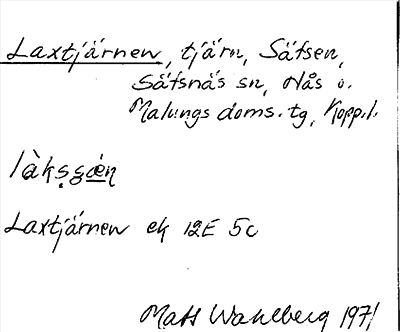 Laxtjärnen, tjärn, Säfsen,
Säfsnäs sn, Nås o.
Malungs doms. tg, Kopp. l.
Laxtjärnen ek 12E 5c
Mats Wahlberg 1971